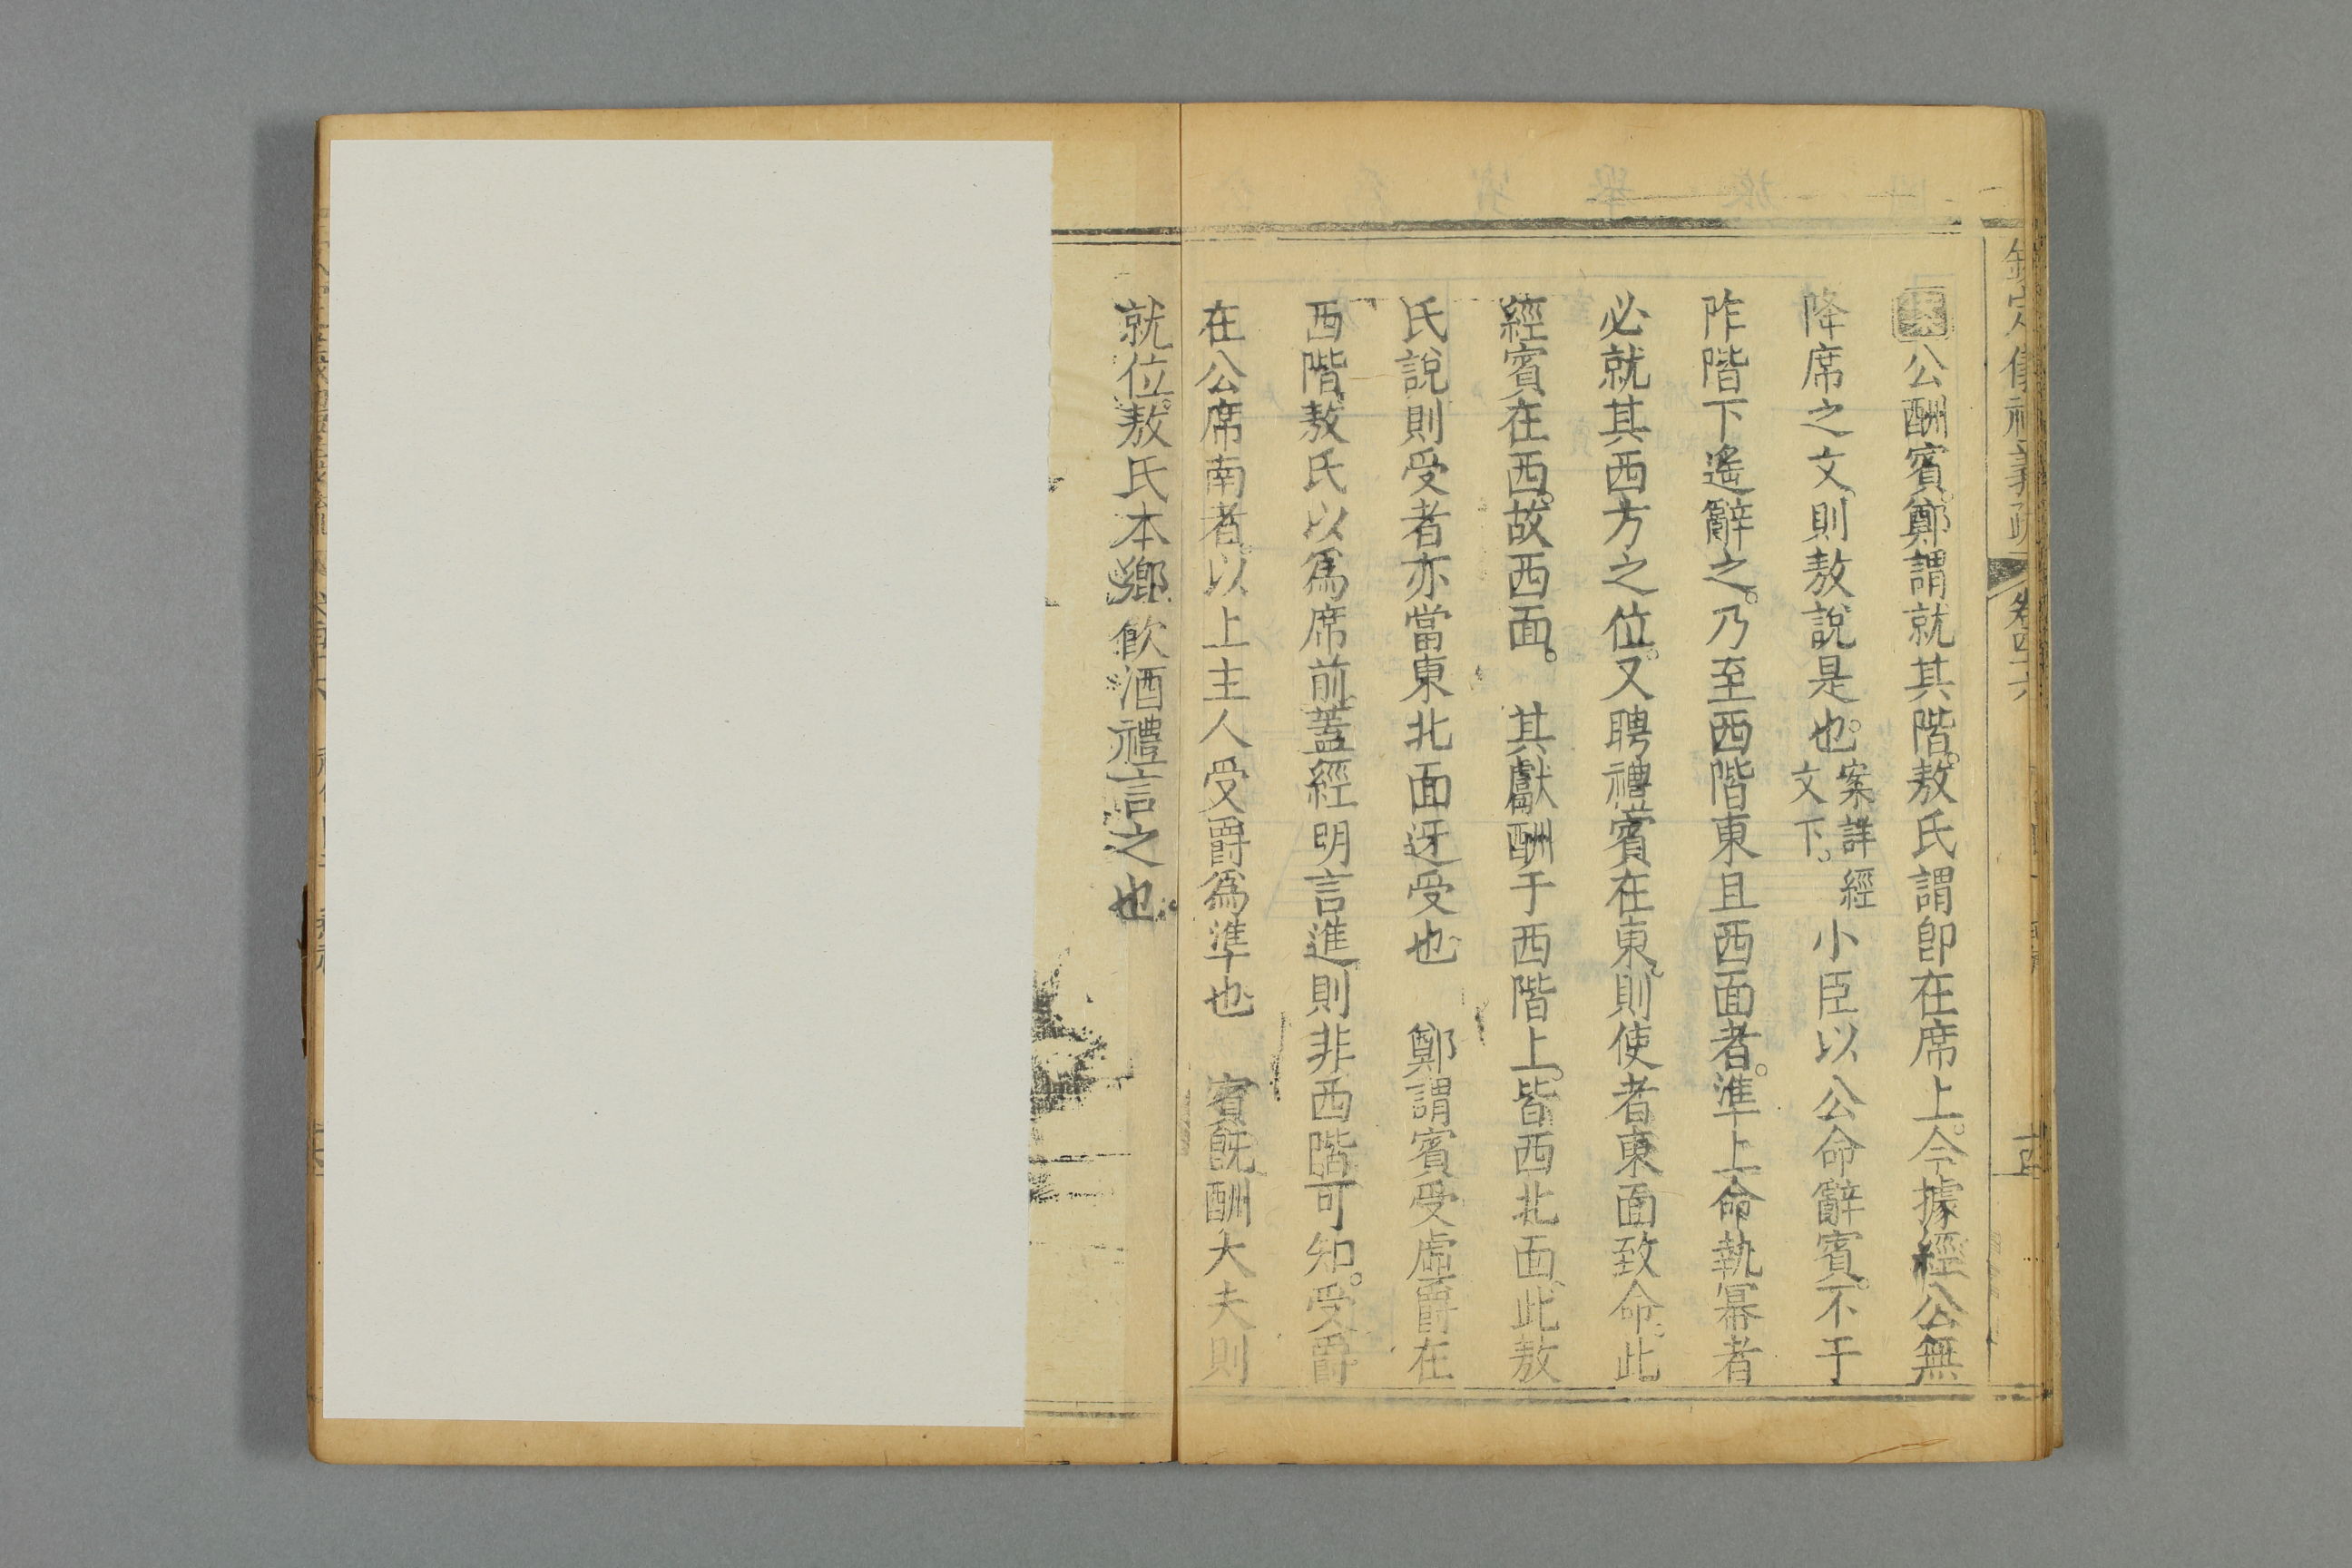 欽定儀禮義疏 卷四十六
公酬賓鄭謂就其階敖氏謂卽在席上今據經公無
降席之文則敖說是也案詳經文下。小臣以公命辭賓不于
阼階下遙辭之。乃至西階東且西面者。準上命執冪者
必就其西方之位。又聘禮賓在東則使者東面致命。此
經賓在西。故西面。 其獻酬于西階上。皆西北面此敖
氏說則受者亦當東北面迓受也 鄭謂賓受虛爵在
西階敖氏以爲席前蓋經明言進則非西階可知。受爵
在公席南者。以上主人受爵爲準也 賓旣酬大夫則
就位。敖氏本鄉飮酒禮言之也